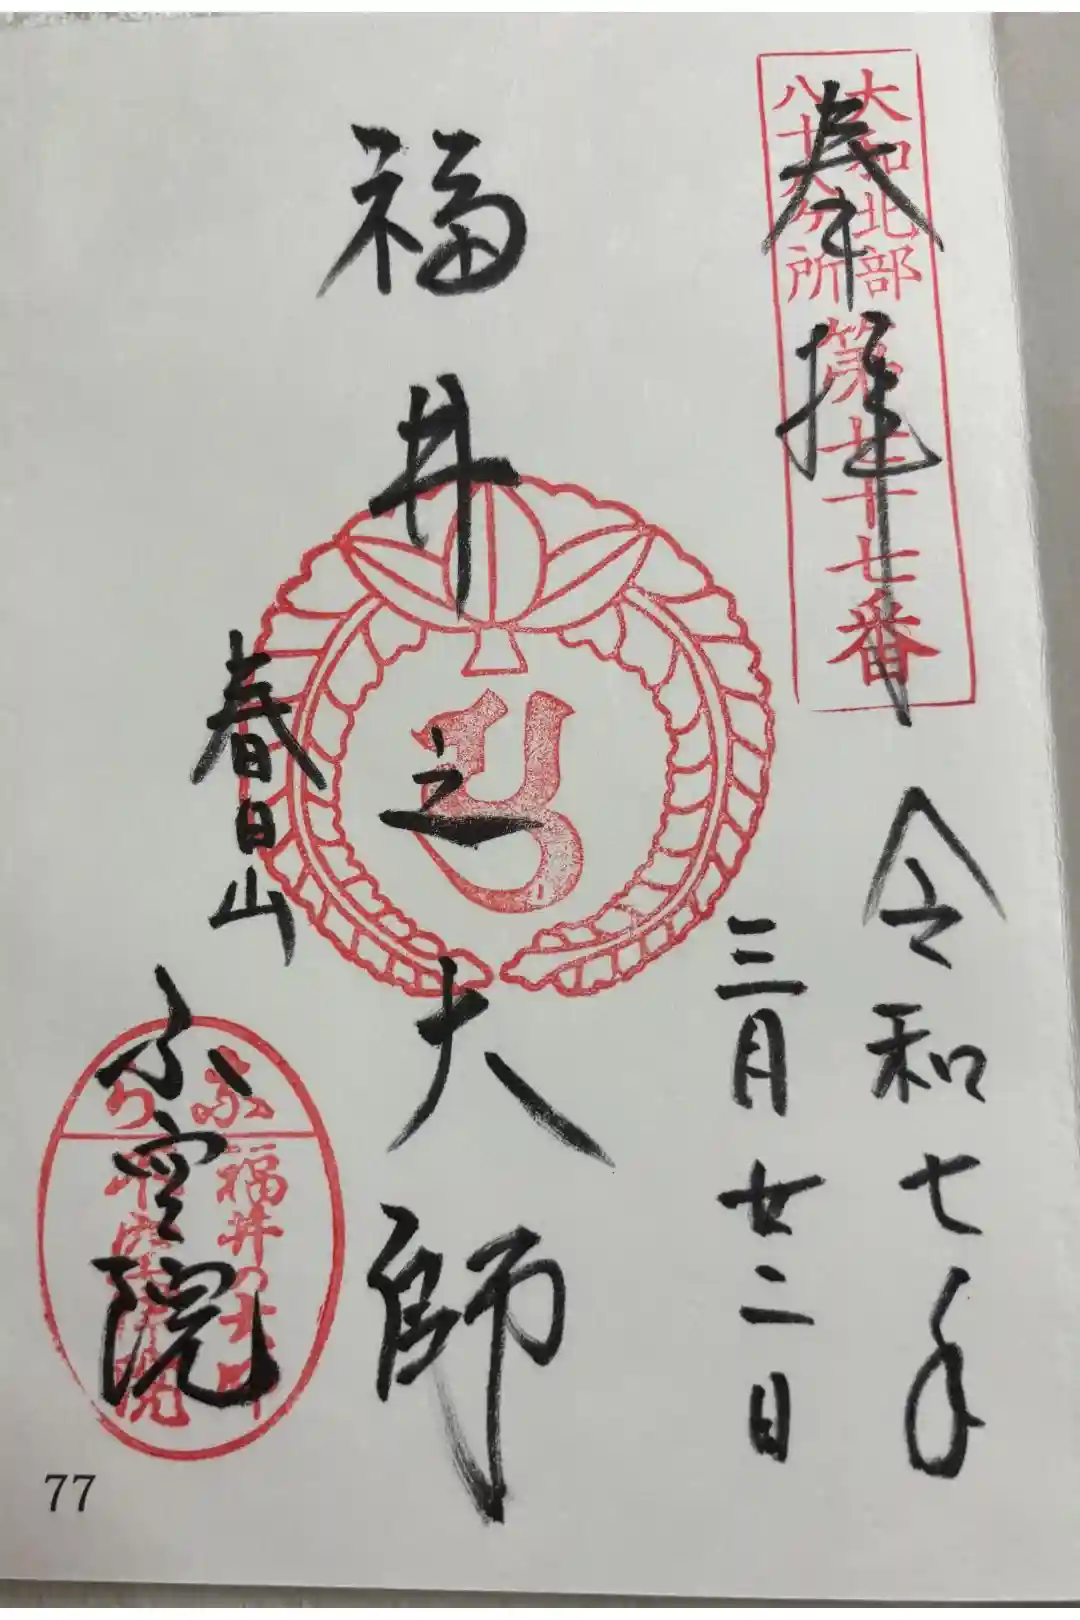 奉拝
大和北部
八十八ヶ所
第七十七番
令和七年
三月廿二日
福井之大師
春日山
不空院
福井の大師
不空院
77